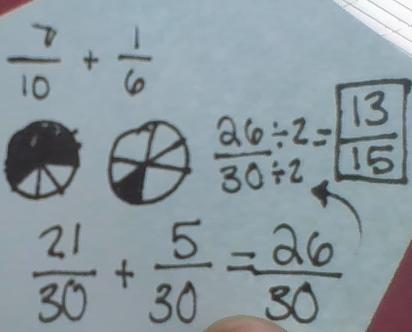 7/10 + 1/6
26/30 ÷2/÷2 = 13/15
21/30 + 5/30 = 26/30